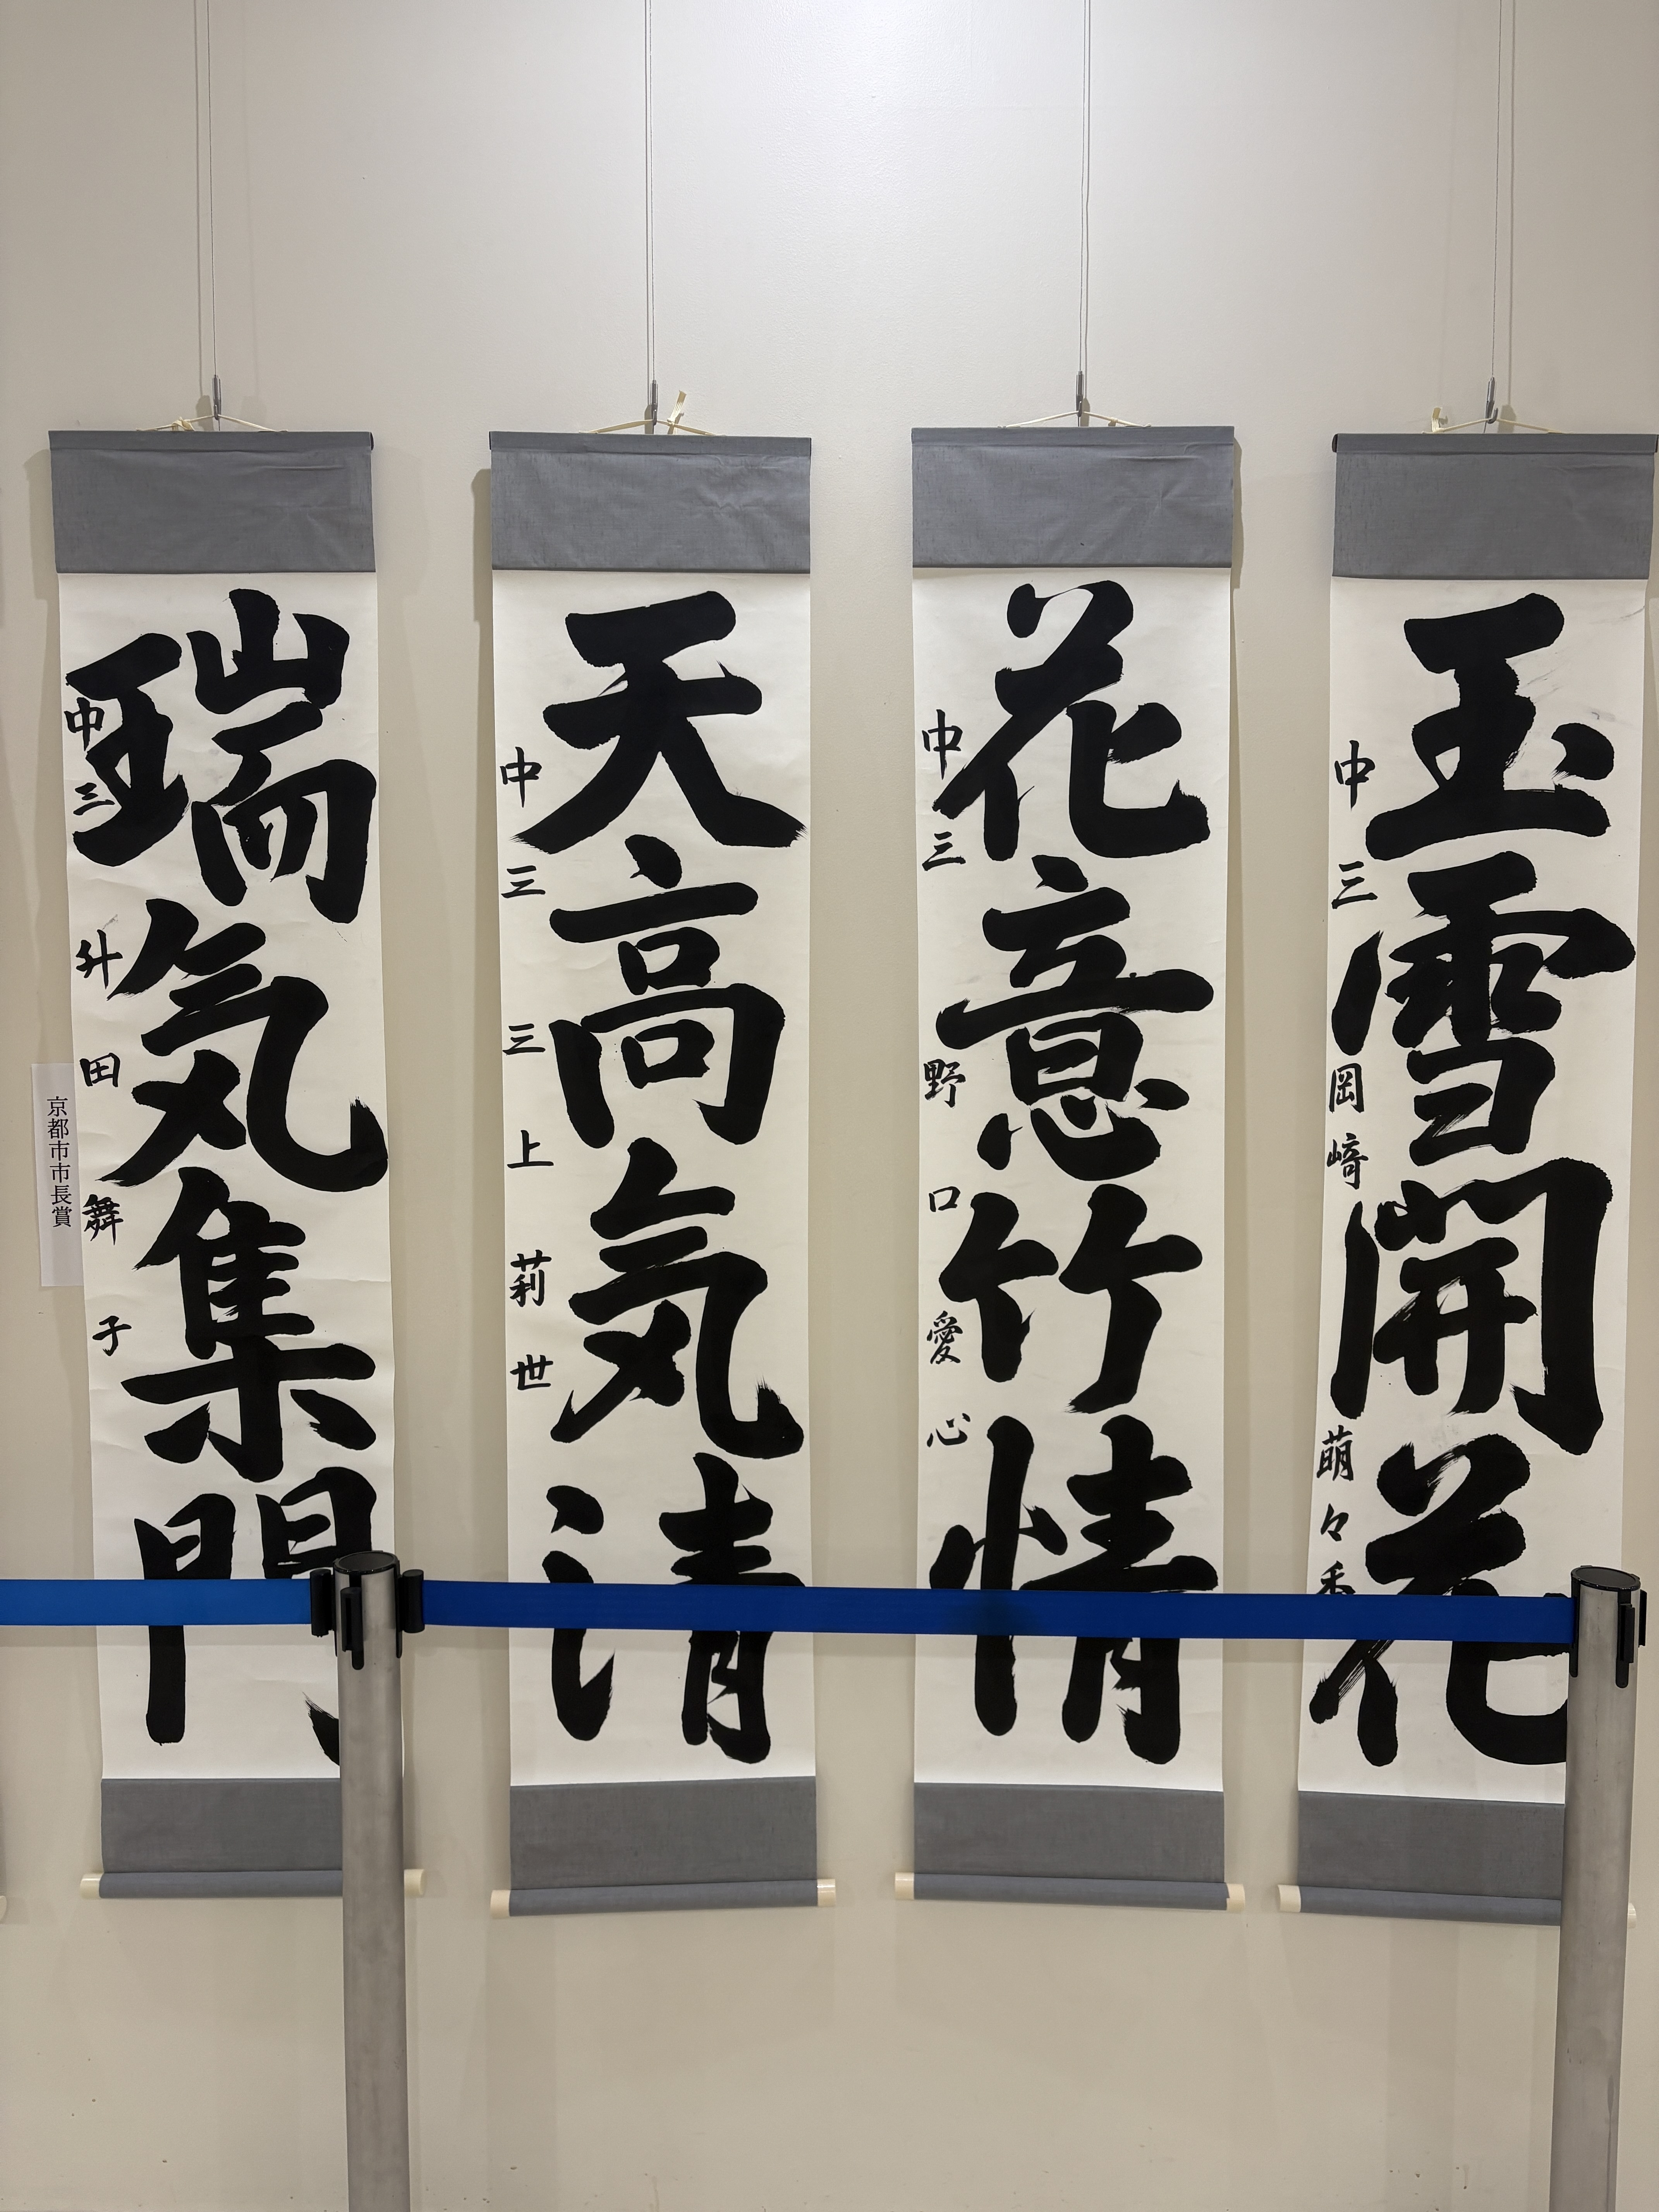 玉雪開花
中三 岡崎 萌々香
花意竹情
中三 野口愛心
天高気清
中三 三上莉世
瑞気集門
中三 升田舞子
京都市市長賞